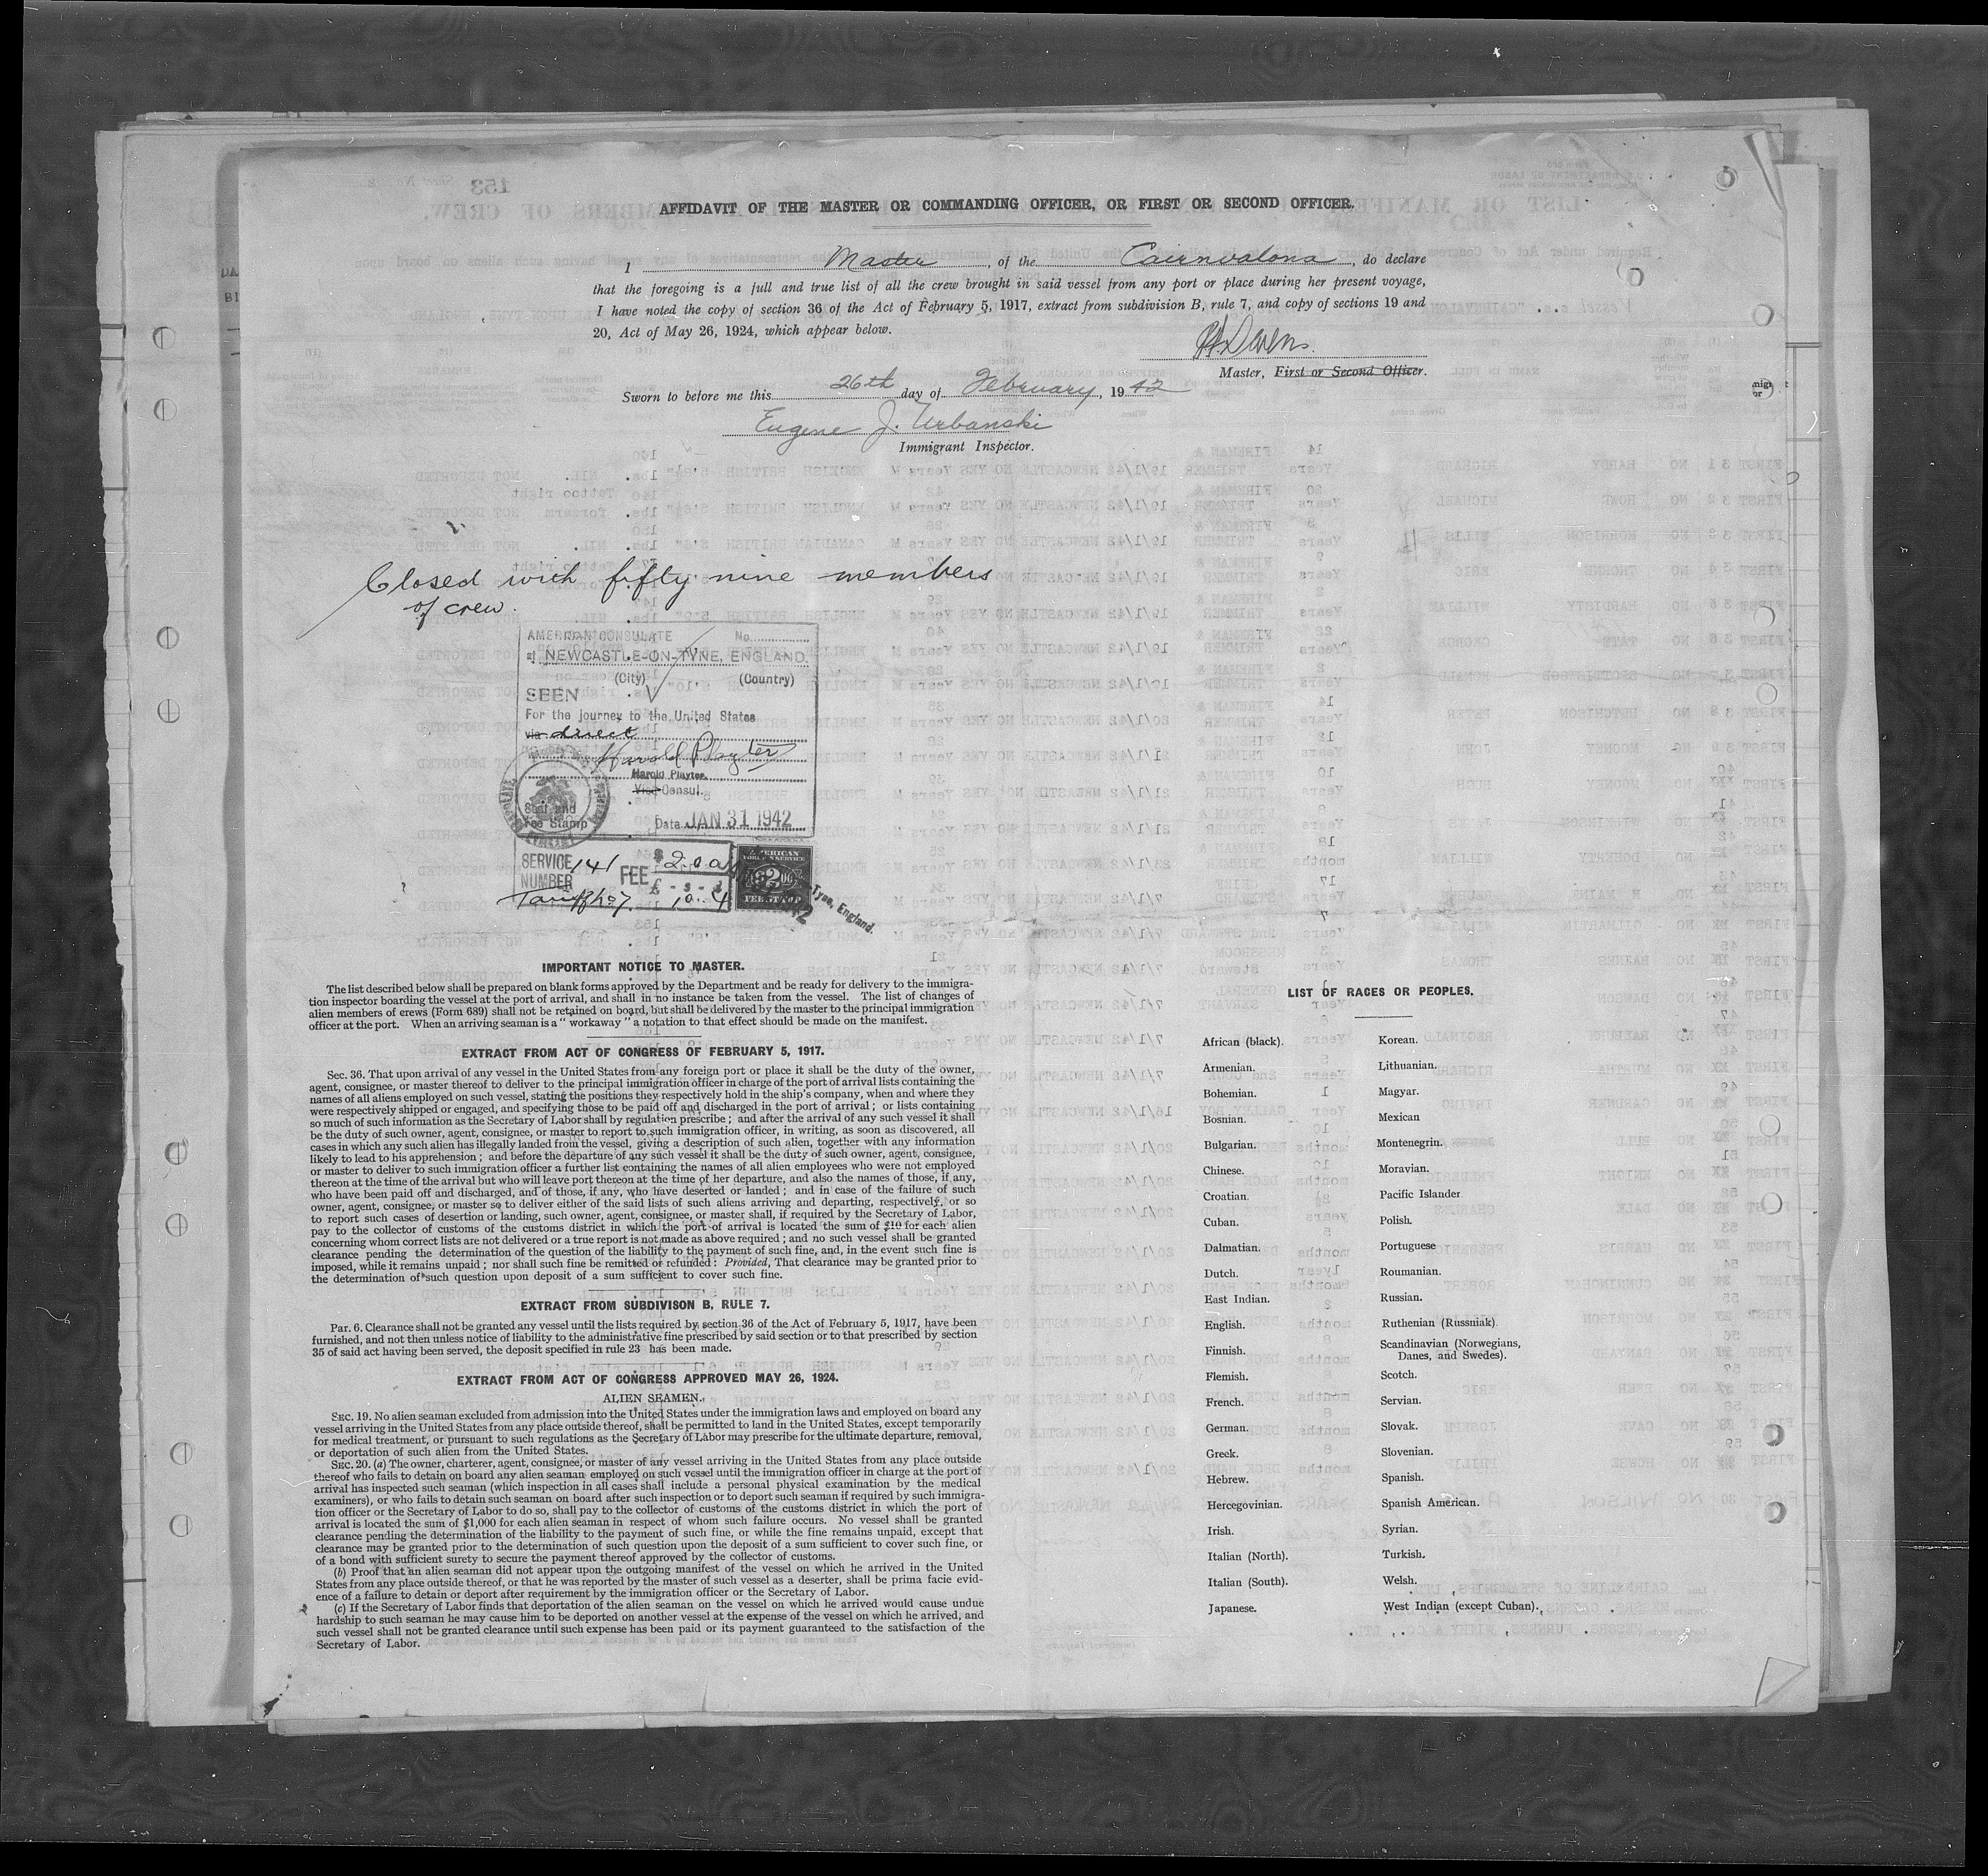 AFFIDAVIT OF THE MASTER OR COMMANDING OFFICER, OR FIRST OR SECOND OFFICER.
I Master, of the Cairnvalona, do declare
that the foregoing is a full and true list of all the crew brought in said vessel from any port or place during her present voyage,
I have noted the copy of section 36 of the Act of February 5, 1917, extract from subdivision B, rule 7, and copy of sections 19 and
20, Act of May 26, 1924, which appear below.
Master, First or Second Officer.
Sworn to before me this 26th day of February, 1942
Eugene J. Urbanski
Immigrant Inspector.
Closed with fifty nine members
of crew.
AMERICAN CONSULATE No.
at NEWCASTLE-ON-TYNE, ENGLAND.
(City) (Country)
SEEN
For the journey to the United States
via direct
Harold Playter
Harold Playter.
Vice Consul.
Seal and
Fee Stamp
Date JAN 31 1942
SERVICE 141 FEE $2.00
NUMBER
Tyne, England.
IMPORTANT NOTICE TO MASTER.
The list described below shall be prepared on blank forms approved by the Department and be ready for delivery to the immigra-
tion inspector boarding the vessel at the port of arrival, and shall in no instance be taken from the vessel. The list of changes of
alien members of crews (Form 689) shall not be retained on board, but shall be delivered by the master to the principal immigration
officer at the port. When an arriving seaman is a "workaway" a notation to that effect should be made on the manifest.
EXTRACT FROM ACT OF CONGRESS OF FEBRUARY 5, 1917.
SEC. 36. That upon arrival of any vessel in the United States from any foreign port or place it shall be the duty of the owner,
agent, consignee, or master thereof to deliver to the principal immigration officer in charge of the port of arrival lists containing the
names of all aliens employed on such vessel, stating the positions they respectively hold in the ship's company, when and where they
were respectively shipped or engaged, and specifying those to be paid off and discharged in the port of arrival; or lists containing
so much of such information as the Secretary of Labor shall by regulation prescribe; and after the arrival of any such vessel it shall
be the duty of such owner, agent, consignee, or master to report to such immigration officer, in writing, as soon as discovered, all
cases in which any such alien has illegally landed from the vessel, giving a description of such alien, together with any information
likely to lead to his apprehension; and before the departure of any such vessel it shall be the duty of such owner, agent, consignee,
or master to deliver to such immigration officer a further list containing the names of all alien employees who were not employed
thereon at the time of the arrival but who will leave port thereon at the time of her departure, and also the names of those, if any,
who have been paid off and discharged, and of those, if any, who have deserted or landed; and in case of the failure of such
owner, agent, consignee, or master so to deliver either of the said lists of such aliens arriving and departing, respectively, or so
to report such cases of desertion or landing, such owner, agent, consignee, or master shall, if required by the Secretary of Labor,
pay to the collector of customs of the customs district in which the port of arrival is located the sum of $10 for each alien
concerning whom correct lists are not delivered or a true report is not made as above required; and no such vessel shall be granted
clearance pending the determination of the question of the liability to the payment of such fine, and, in the event such fine is
imposed, while it remains unpaid; nor shall such fine be remitted or refunded: Provided, That clearance may be granted prior to
the determination of such question upon deposit of a sum sufficient to cover such fine.
EXTRACT FROM SUBDIVISON B, RULE 7.
Par. 6. Clearance shall not be granted any vessel until the lists required by section 36 of the Act of February 5, 1917, have been
furnished, and not then unless notice of liability to the administrative fine prescribed by said section or to that prescribed by section
35 of said act having been served, the deposit specified in rule 23 has been made.
EXTRACT FROM ACT OF CONGRESS APPROVED MAY 26, 1924.
ALIEN SEAMEN.
SEC. 19. No alien seaman excluded from admission into the United States under the immigration laws and employed on board any
vessel arriving in the United States from any place outside thereof, shall be permitted to land in the United States, except temporarily
for medical treatment, or pursuant to such regulations as the Secretary of Labor may prescribe for the ultimate departure, removal,
or deportation of such alien from the United States.
SEC. 20. (a) The owner, charterer, agent, consignee, or master of any vessel arriving in the United States from any place outside
thereof who fails to detain on board any alien seaman employed on such vessel until the immigration officer in charge at the port of
arrival has inspected such seaman (which inspection in all cases shall include a personal physical examination by the medical
examiners), or who fails to detain such seaman on board after such inspection or to deport such seaman if required by such immigra-
tion officer or the Secretary of Labor to do so, shall pay to the collector of customs of the customs district in which the port of
arrival is located the sum of $1,000 for each alien seaman in respect of whom such failure occurs. No vessel shall be granted
clearance pending the determination of the question of the liability to the payment of such fine, or while the fine remains unpaid, except that
clearance may be granted prior to the determination of such question upon the deposit of a sum sufficient to cover such fine, or
of a bond with sufficient surety to secure the payment thereof approved by the collector of customs.
(b) Proof that an alien seaman did not appear upon the outgoing manifest of the vessel on which he arrived in the United
States from any place outside thereof, or that he was reported by the master of such vessel as a deserter, shall be prima facie evid-
ence of a failure to detain or deport after requirement by the immigration officer or the Secretary of Labor.
(c) If the Secretary of Labor finds that deportation of the alien seaman on the vessel on which he arrived would cause undue
hardship to such seaman he may cause him to be deported on another vessel at the expense of the vessel on which he arrived, and
such vessel shall not be granted clearance until such expense has been paid or its payment guaranteed to the satisfaction of the
Secretary of Labor.
LIST OF RACES OR PEOPLES.
African (black).
Armenian.
Bohemian.
Bosnian.
Bulgarian.
Chinese.
Croatian.
Cuban.
Dalmatian.
Dutch.
East Indian.
English.
Finnish.
Flemish.
French.
German.
Greek.
Hebrew.
Hercegovinian.
Irish.
Italian (North).
Italian (South).
Japanese.
Korean.
Lithuanian.
Magyar.
Mexican
Montenegrin.
Moravian.
Pacific Islander
Polish.
Portuguese
Roumanian.
Russian.
Ruthenian (Russniak).
Scandinavian (Norwegians,
Danes, and Swedes).
Scotch.
Servian.
Slovak.
Slovenian.
Spanish.
Spanish American.
Syrian.
Turkish.
Welsh.
West Indian (except Cuban).